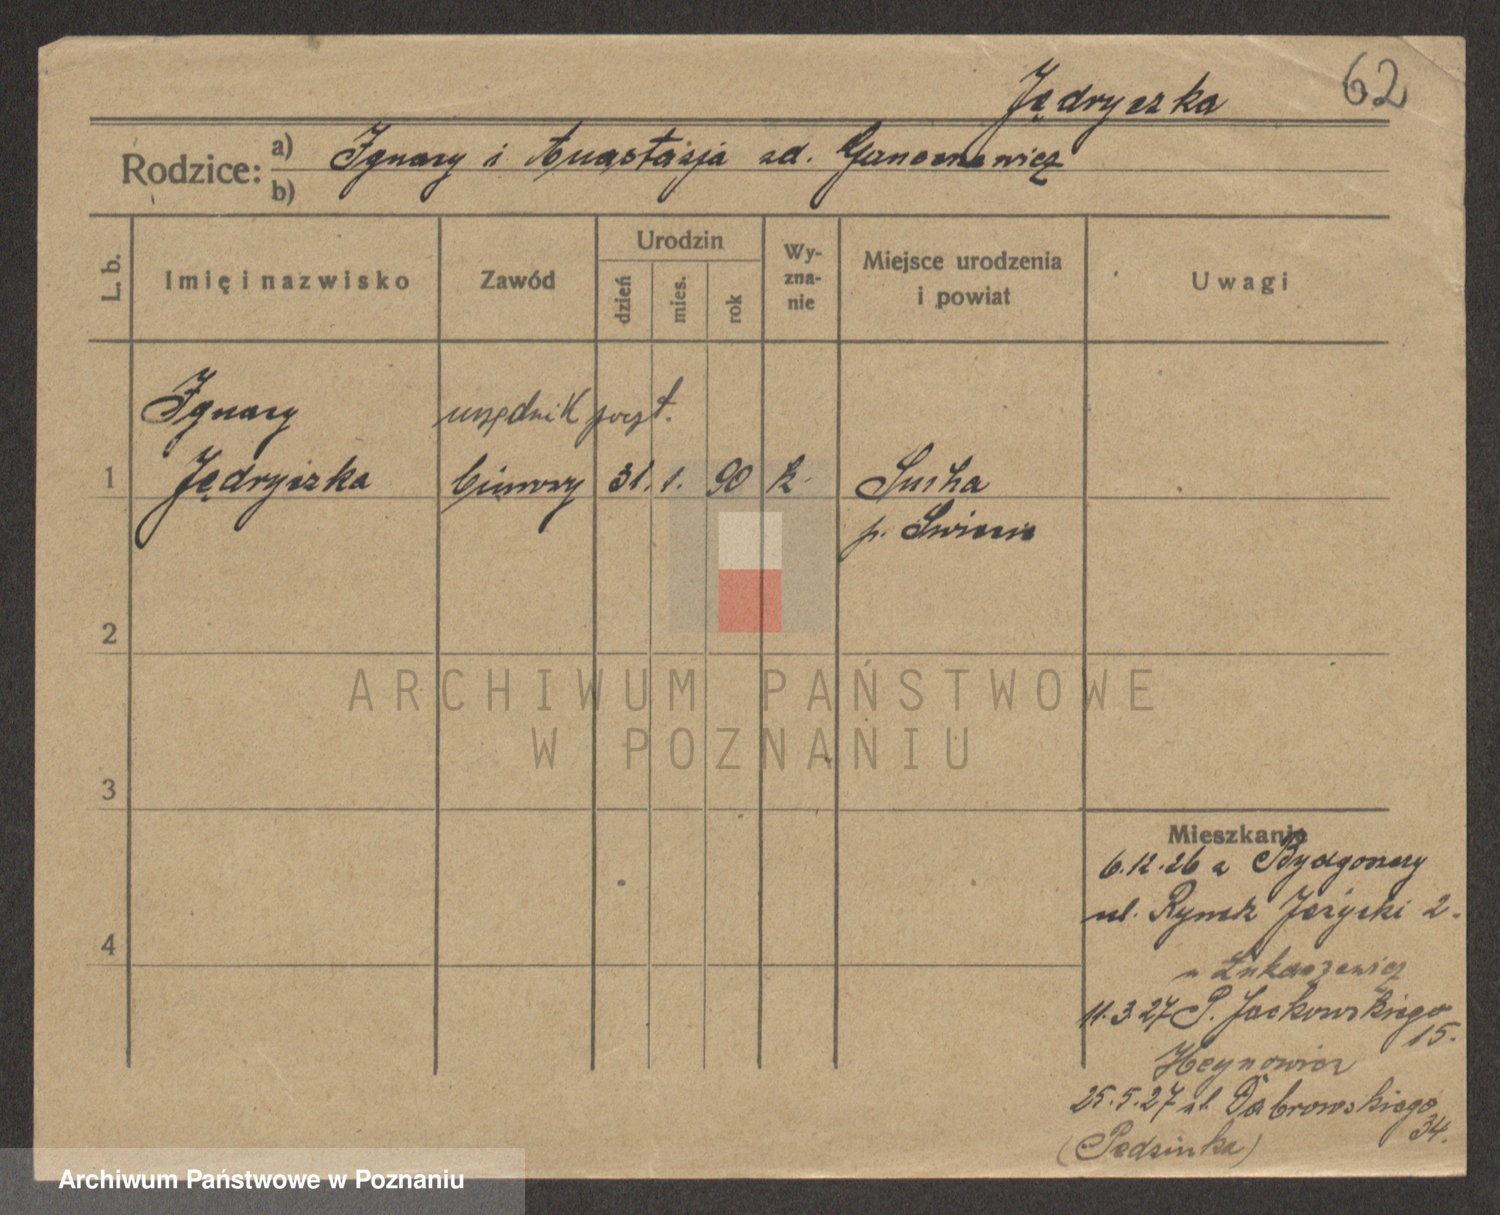 62
Jędryczka
Rodzice: a) Ignacy i Anastazja zd.
b)
L. b.
Imię i nazwisko
Zawód
Urodzin
dzień
mies.
rok
Wy-
zna-
nie
Miejsce urodzenia
i powiat
Uwagi
Ignacy
urzędnik poczt.
1 Jędryczka 31. 1. 90 k. Sucha
p. Świecie
2
3
4
Mieszkanie
6.12.26 z Bydgoszczy
ul. Rynek Jeżycki 2.
u Łukaszewicz
11.3.27 P. Jackowskiego
15.
Heynowicz
25.5.27 ul. Dąbrowskiego
34.
(Pedzinka)
ARCHIWUM PAŃSTWOWE
W POZNANIU
Archiwum Państwowe w Poznaniu